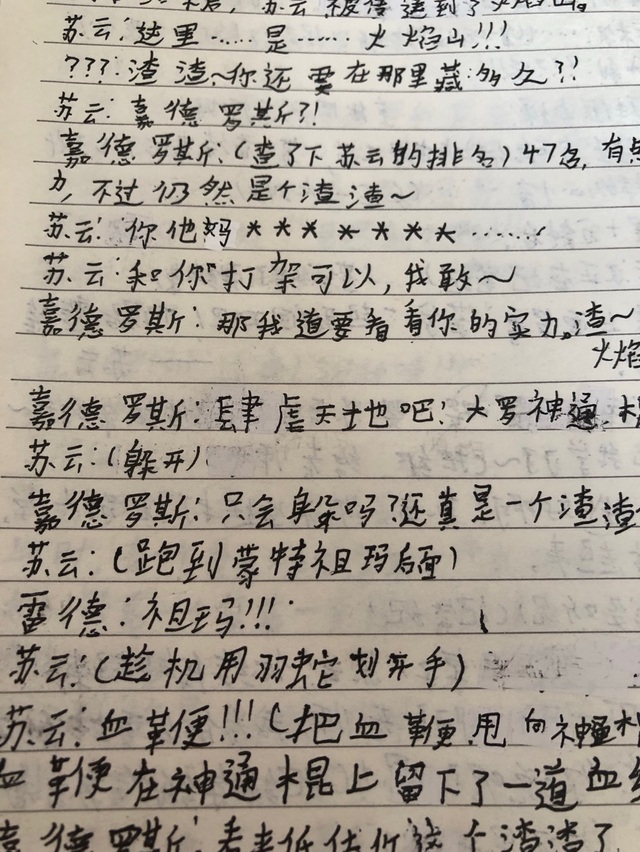 苏云被传送到了火焰山。
苏云:这里……是……火焰山!!!
???:渣渣~你还要在那里藏多久?!
苏云:嘉德罗斯?!
嘉德罗斯:(查了下苏云的排名)47名,有点
力,不过仍然是个渣渣~
苏云:你他妈*******……
苏云:和你打架可以,我敢~
嘉德罗斯:那我道要看看你的实力。渣~
火焰
嘉德罗斯:肆虐天地吧!大罗神通棍
苏云:(躲开)
嘉德罗斯:只会躲吗?还真是一个渣渣
苏云:(跑到蒙特祖玛后面)
雷德:祖玛!!!
苏云:(趁机用羽蛇划开手)
苏云:血鞭!!!(把血鞭甩向神通棍
血鞭在神通棍上留下了一道血
嘉德罗斯:看来低估你这个渣渣了